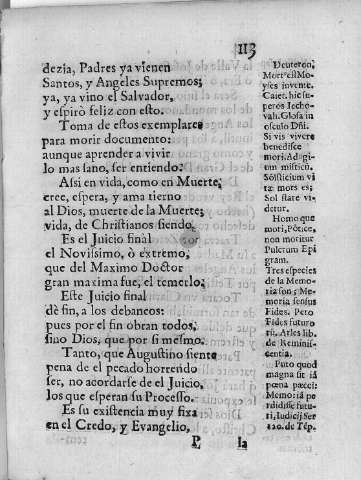 113
dezia, Padres ya vienen
Santos, y Angeles Supremos;
ya, ya vino el Salvador,
y espirò feliz con esto.
Toma de estos exemplares
para morir documento:
aunque aprender a vivir
lo mas sano, ser entiendo.
Assi en vida, como en Muerte,
cree, espera, y ama tierno
al Dios, muerte de la Muerte;
vida, de Christianos siendo.
Es el Juicio final
el Novissimo, ò extremo,
que del Maximo Doctor
gran maxima fue, el temerlo.
Este Juicio final
dè fin, a los debaneos:
pues por el fin obran todos,
sino Dios, que por si mesmo.
Tanto, que Augustino siente
pena de el pecado horrendo
ser, no acordarse de el Juicio,
los que esperan su Processo.
Es su existencia muy fixa
en el Credo, y Evangelio,
P
la
Deuteron,
Mort' est Mo-
yses invente.
Caiet. hic su-
peros Iecho-
vah. Glosa in
osculo Dñi.
Si vis vivere
benedisce
mori. Adagi-
um misticū.
Solsticium vi
tæ mors es;
Sol stare vi-
detur.
Homo que
mori, Pótice,
non moritur
Pulcrum Epi
gram.
Tres species
de la Memo-
ria son; Me-
moria sensus
Fides. Pero
Fides futuro
rū. Arles lib.
de Reminis-
centia.
Puto quod
magna sit iá
pœna pœci:
Memoriá pe
rdidisse futu-
ri, Iudicij Ser
120. de Tép.